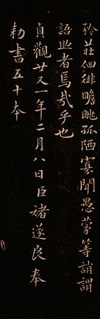 矜莊徘徊瞻眺孤陋寡聞愚蒙等誚謂
語助者焉哉乎也
貞觀廿又一年二月八日臣褚遂良奉
勅書五十本